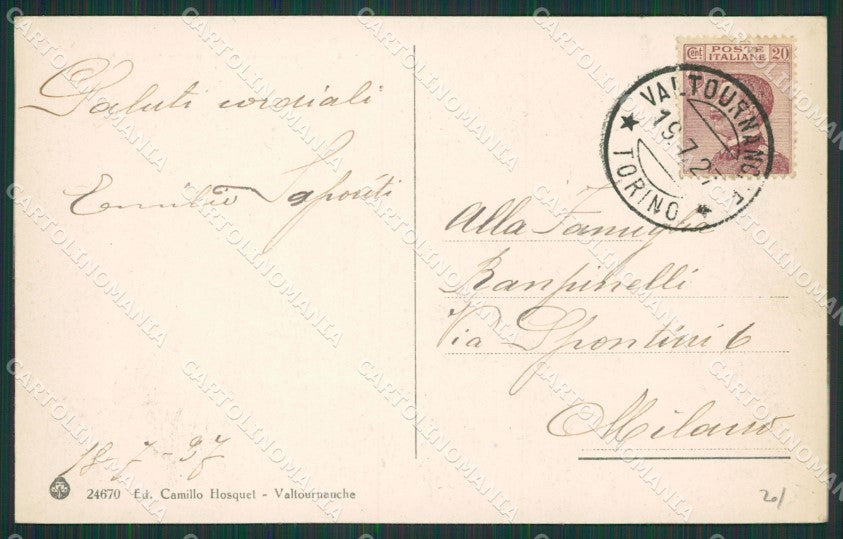 Saluti cordiali
Emilio Saporiti
18-7-27
24670 Ed. Camillo Hosquet - Valtournanche
Cent POSTE ITALIANE 20
VALTOURNANCHE
19.7.27
TORINO
Alla Famiglia
Ranpinelli
Via Spontini 6
Milano
20/
CARTOLINOMANIA